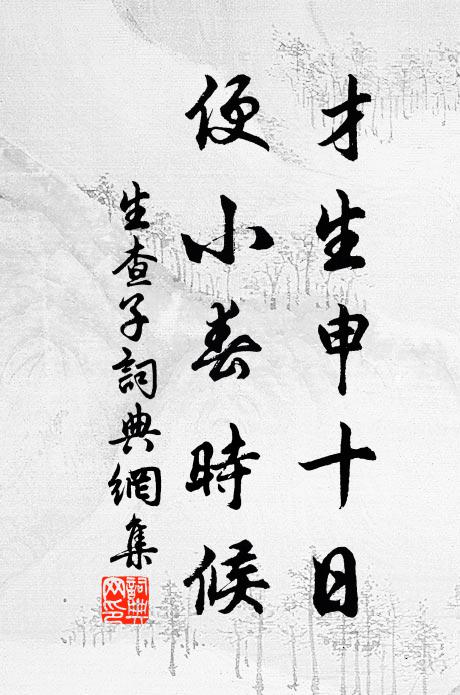 才生申十日
便小春時候
生查子詞典網集
詞典文印